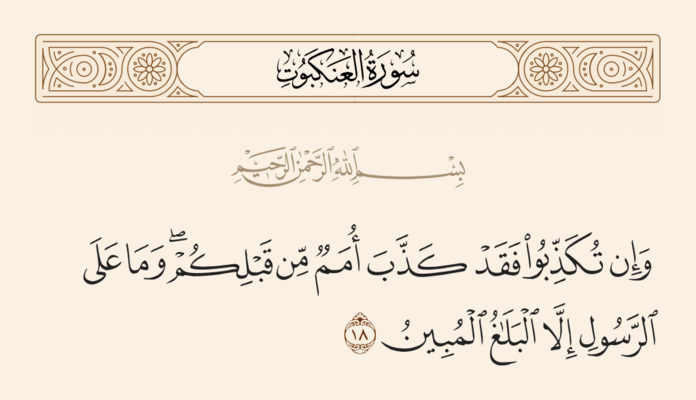 سُورَةُ العَنكَبُوتِ
بِسْمِ ٱللَّهِ ٱلرَّحْمَٰنِ ٱلرَّحِيمِ
وَإِن تُكَذِّبُوا۟ فَقَدْ كَذَّبَ أُمَمٌ مِّن قَبْلِكُمْ ۖ وَمَا عَلَى
ٱلرَّسُولِ إِلَّا ٱلْبَلَٰغُ ٱلْمُبِينُ ١٨